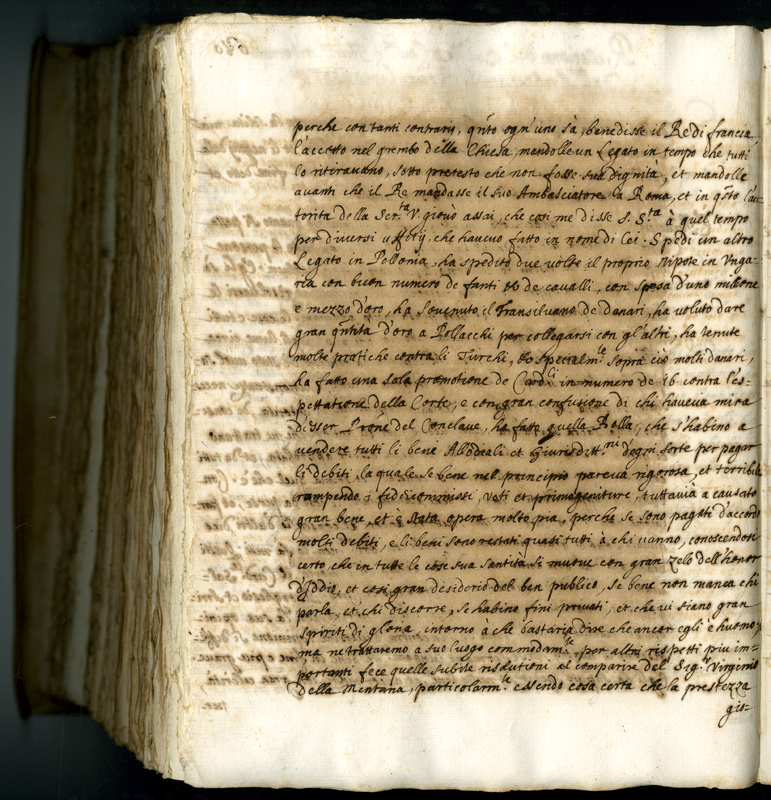 perche con tanti contrarij, qnto ogn'uno sà, benedisse il Re di francia
l'accettò nel grembo della Chiesa, mandolle un Legato in tempo che tutti
lo ritiravano, sotto pretesto che non fosse sua dignità, et mandolle
avanti che il Re mandasse il suo Ambasciatore a Roma, et in qsto l'au-
torità della Ser.ta V. giovò assai, che cosi me disse S. S.ta à quel tempo
per diversi uffitij, che haveva fatto in nome di lei. Spedi un altro
Legato in Pollonia, ha spedito due volte il proprio Nipote in Unga-
ria con buon numero de fanti et de cavalli, con spesa d'uno millione
e mezzo d'oro, ha sovenuto il Transilvano de danari, ha voluto dare
gran qntità d'oro a Pollacchi per collegarsi con gl'altri, ha tenute
molte pratiche contra li Turchi, et specialm.te sopra ciò molti danari,
ha fatto una sola promotione de Card.li in numero de 16 contra l'es-
pettatione della Corte, e con gran confusione di chi haveva mira
d'esser Prone del Conclave, ha fatto quella Bolla, che s'habino a
vendere tutti li bene Allodeali et Giurisditt.ni d'ogni sorte per pagar
li debiti, la quale se bene nel principio pareva rigorosa, et terribile
rompendo i fideicommissi, voti et primogeniture, tuttavia a causato
gran bene, et è stata opera molto pia, perche se sono pagati d'accordo
molti debiti, e li beni sono restati quasi tutti à chi vanno, conoscendosi
certo, che in tutte le cose sua santità si muove con gran zelo dell'honor
d'Iddio, et cosi gran desiderio del ben publico, se bene non manca chi
parla, et chi discorre, se habino fini privati, et che vi siano gran
spiriti di gloria, intorno à che bastaria dire che ancor egli è huomo,
ma ne trattaremo a suo luogo commodam.te per altri rispetti piu im-
portanti fece quelle subite risolutioni al comparire del Sig.r Virginio
della Mentana, particolarm.te essendo cosa certa che la prestezza
gio-